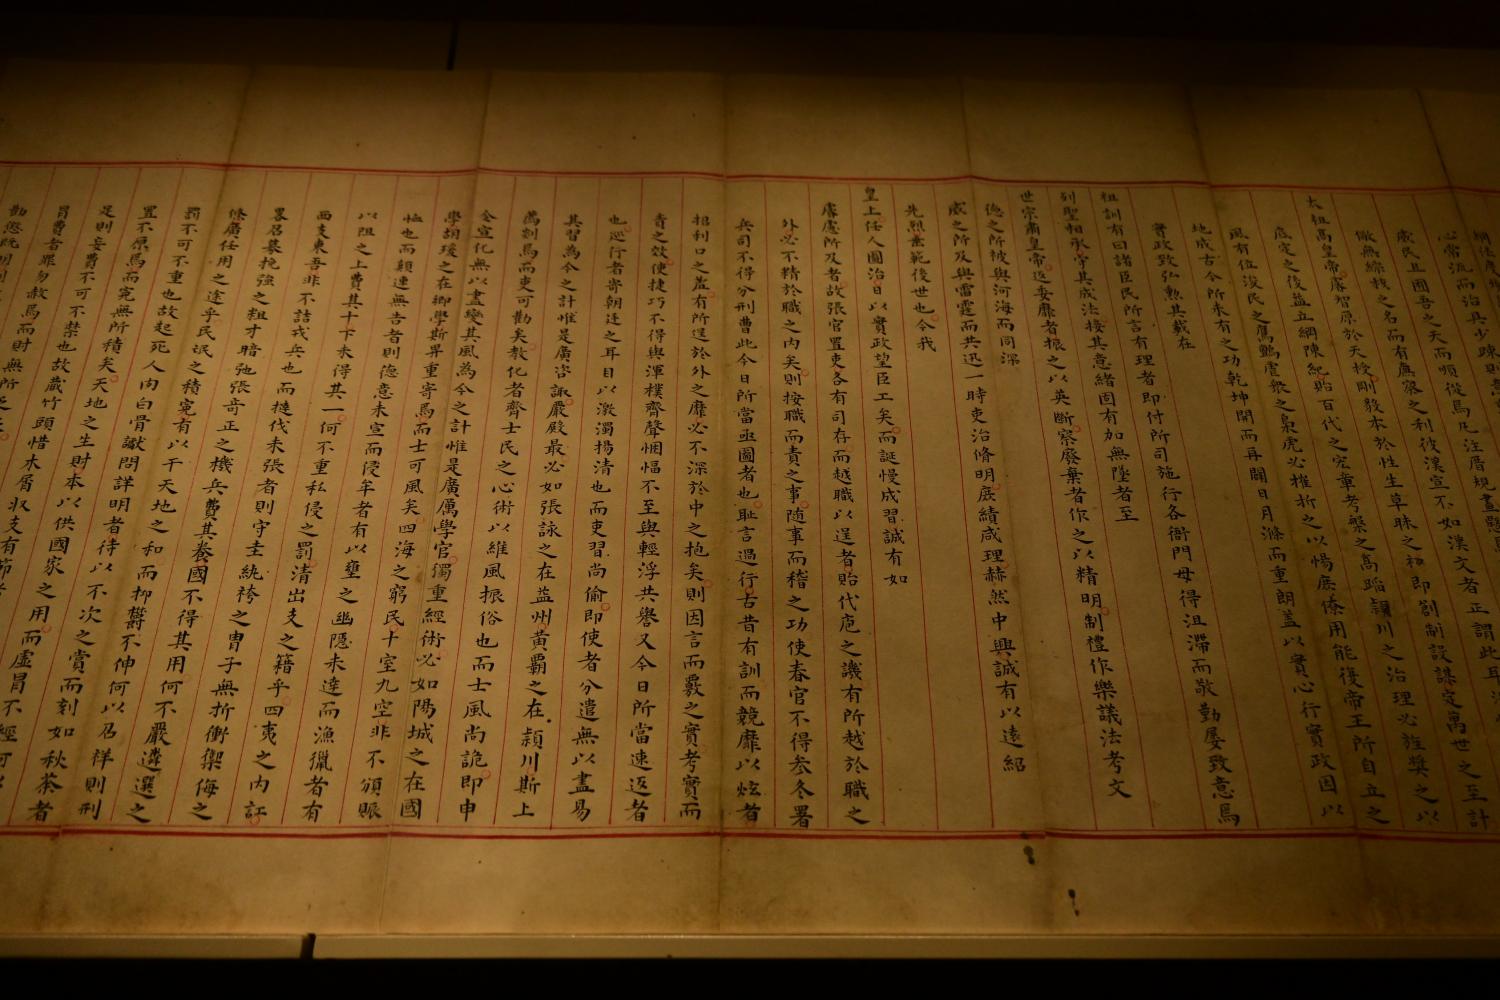 心常流而治具少疎則意
歲民且國吾之天而順從焉凡注厝規畫
徹無綜核之名而有無察之利彼漢宣不如漢文者正謂此耳
太祖高皇帝膚智原於天授剛毅本於性生草昧之初即創制設謀定萬世之至計
底定之後益立綱陳紀貽百代之宏章考槃之高蹈潁川之治理必旌獎之以
風有位浚民之鷹鸇虐眾之梟虎必摧折之以惕庶僚用能後帝王所自立之
地成古今所未有之功乾坤開而再闢日月滌而重朗蓋以實心行實政因以
實政致弘勲其載在
祖訓有曰諸臣民所言有理者即付所司施行各衙門毋得沮滯而敬勤屢致意焉
列聖相承率其成法接其意緒固有加無墜者至
世宗肅皇帝返委靡者振之以英斷察廢棄者作之以精明制禮作樂議法考文
德之所被與河海而同深
威之所及與雷霆而共迅一時吏治修明庶績咸理赫然中興誠有以遠紹
先烈垂範後世也今我
皇上任人圖治日以實政望臣工矣而誕慢成習誠有如
膚慮所及者故張官置吏各有司存而越職以逞者貽代庖之譏有所越於職之
外必不精於職之內矣則按職而責之事隨事而稽之功使春官不得參冬署
兵司不得分刑曹此今日所當亟圖者也恥言過行古昔有訓而競靡以炫者
招利口之羞有所逞於外之靡必不深於中之抱矣則因言而覈之實考實而
責之效使捷巧不得與渾樸齊聲悃愊不至與輕浮共譽又今日所當速返者
也巡行者寄朝廷之耳目以激濁揚清也而吏習尚偷即使者分遣無以盡易
其習為今之計惟是廣咨諏嚴殿最必如張詠之在益州黃霸之在潁川斯上
薦剡焉而吏可勸矣教化者齊士民之心術以維風振俗也而士風尚詭即申
令宣化無以盡變其風為今之計惟是廣厲學官獨重經術必如陽城之在國
學胡瑗之在鄉學斯畀重寄焉而士可風矣四海之窮民十室九空非不頒賑
恤也而顛連無告者則德意未宣而侵牟者有以壅之幽隱未達而漁獵者有
以阻之上費其十下未得其一何不重私侵之罰清出支之籍乎四夷之內訌
西支東吾非不詰戎兵也而撻伐未張者則守圭紈袴之冑子無折衝禦侮之
畧召募挽強之粗才暗弛張奇正之機兵費其養國不得其用何不嚴遴選之
條廣任用之途乎民氓之積冤有以干天地之和而抑鬱不伸何以召祥則刑
罰不可不重也故起死人肉白骨讞問詳明者待以不次之賞而刻如秋荼者
置不原焉而冤無所積矣天地之生財本以供國家之用而虛冒不經何以
足則妄費不可不禁也故藏竹頭惜木屑收支有節者
冒費者罪勿赦焉而財無所乏矣